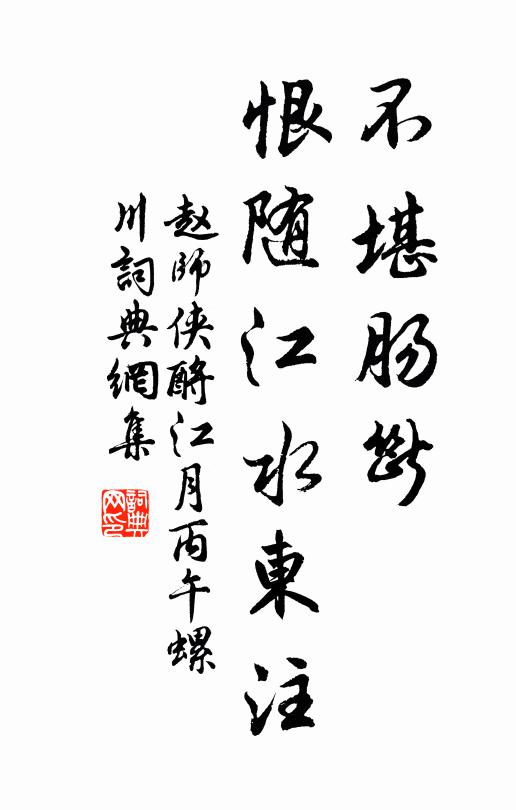 不堪肠断
恨随江水東注
赵师侠酹江月丙午螺
川詞典網集
詞典网印